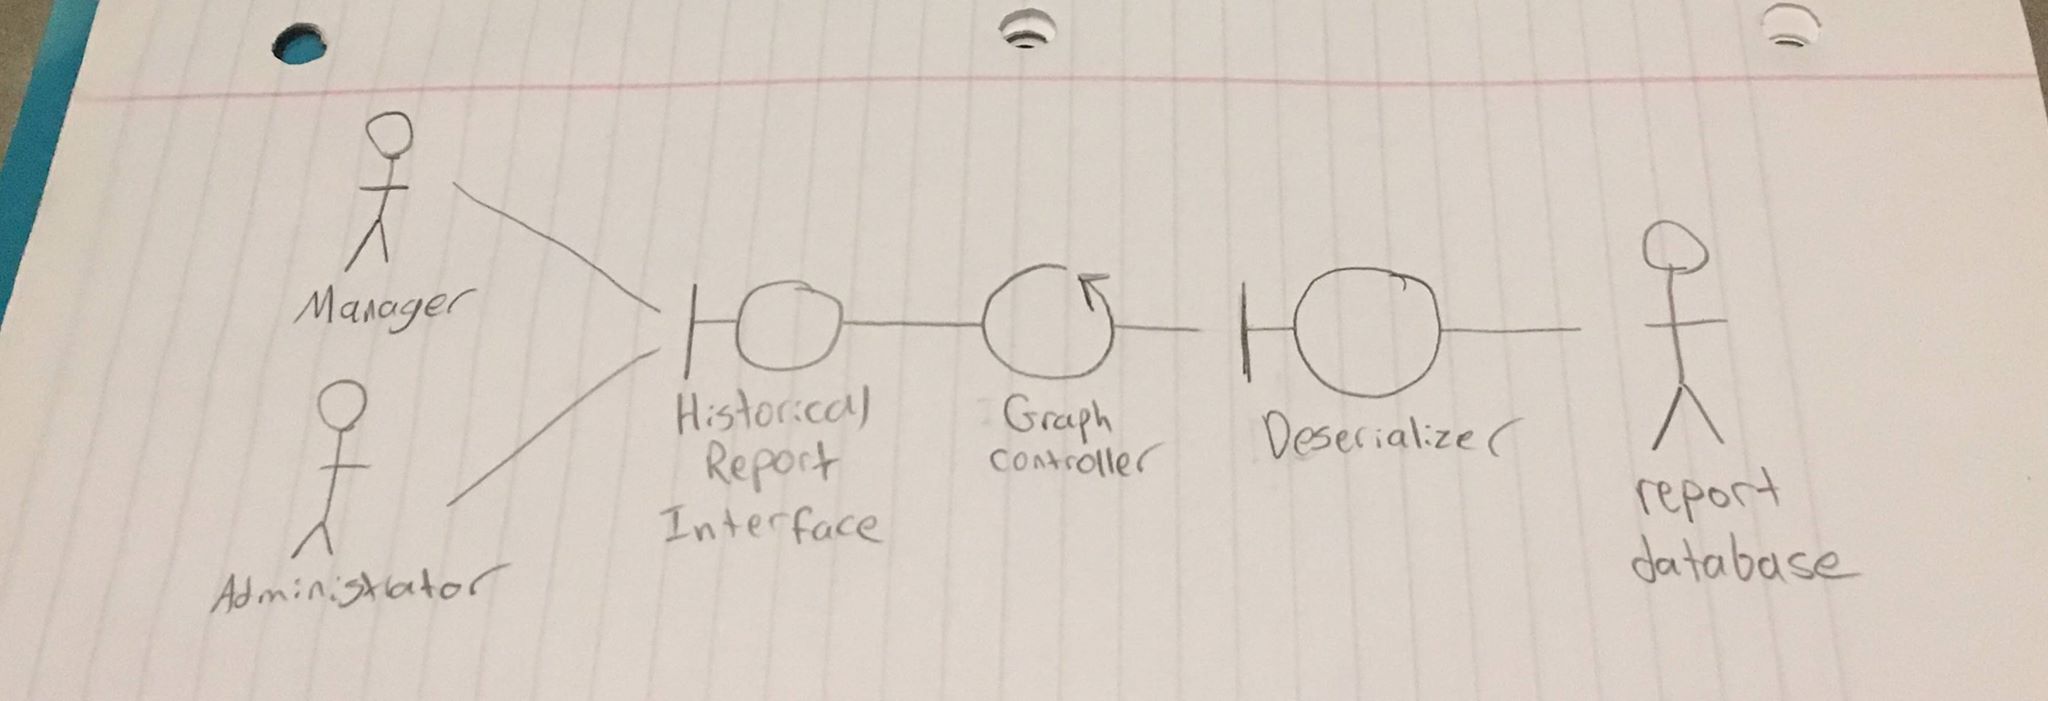 Manager
Administrator
Historical
Report
Interface
Graph
controller
Deserializer
report
database